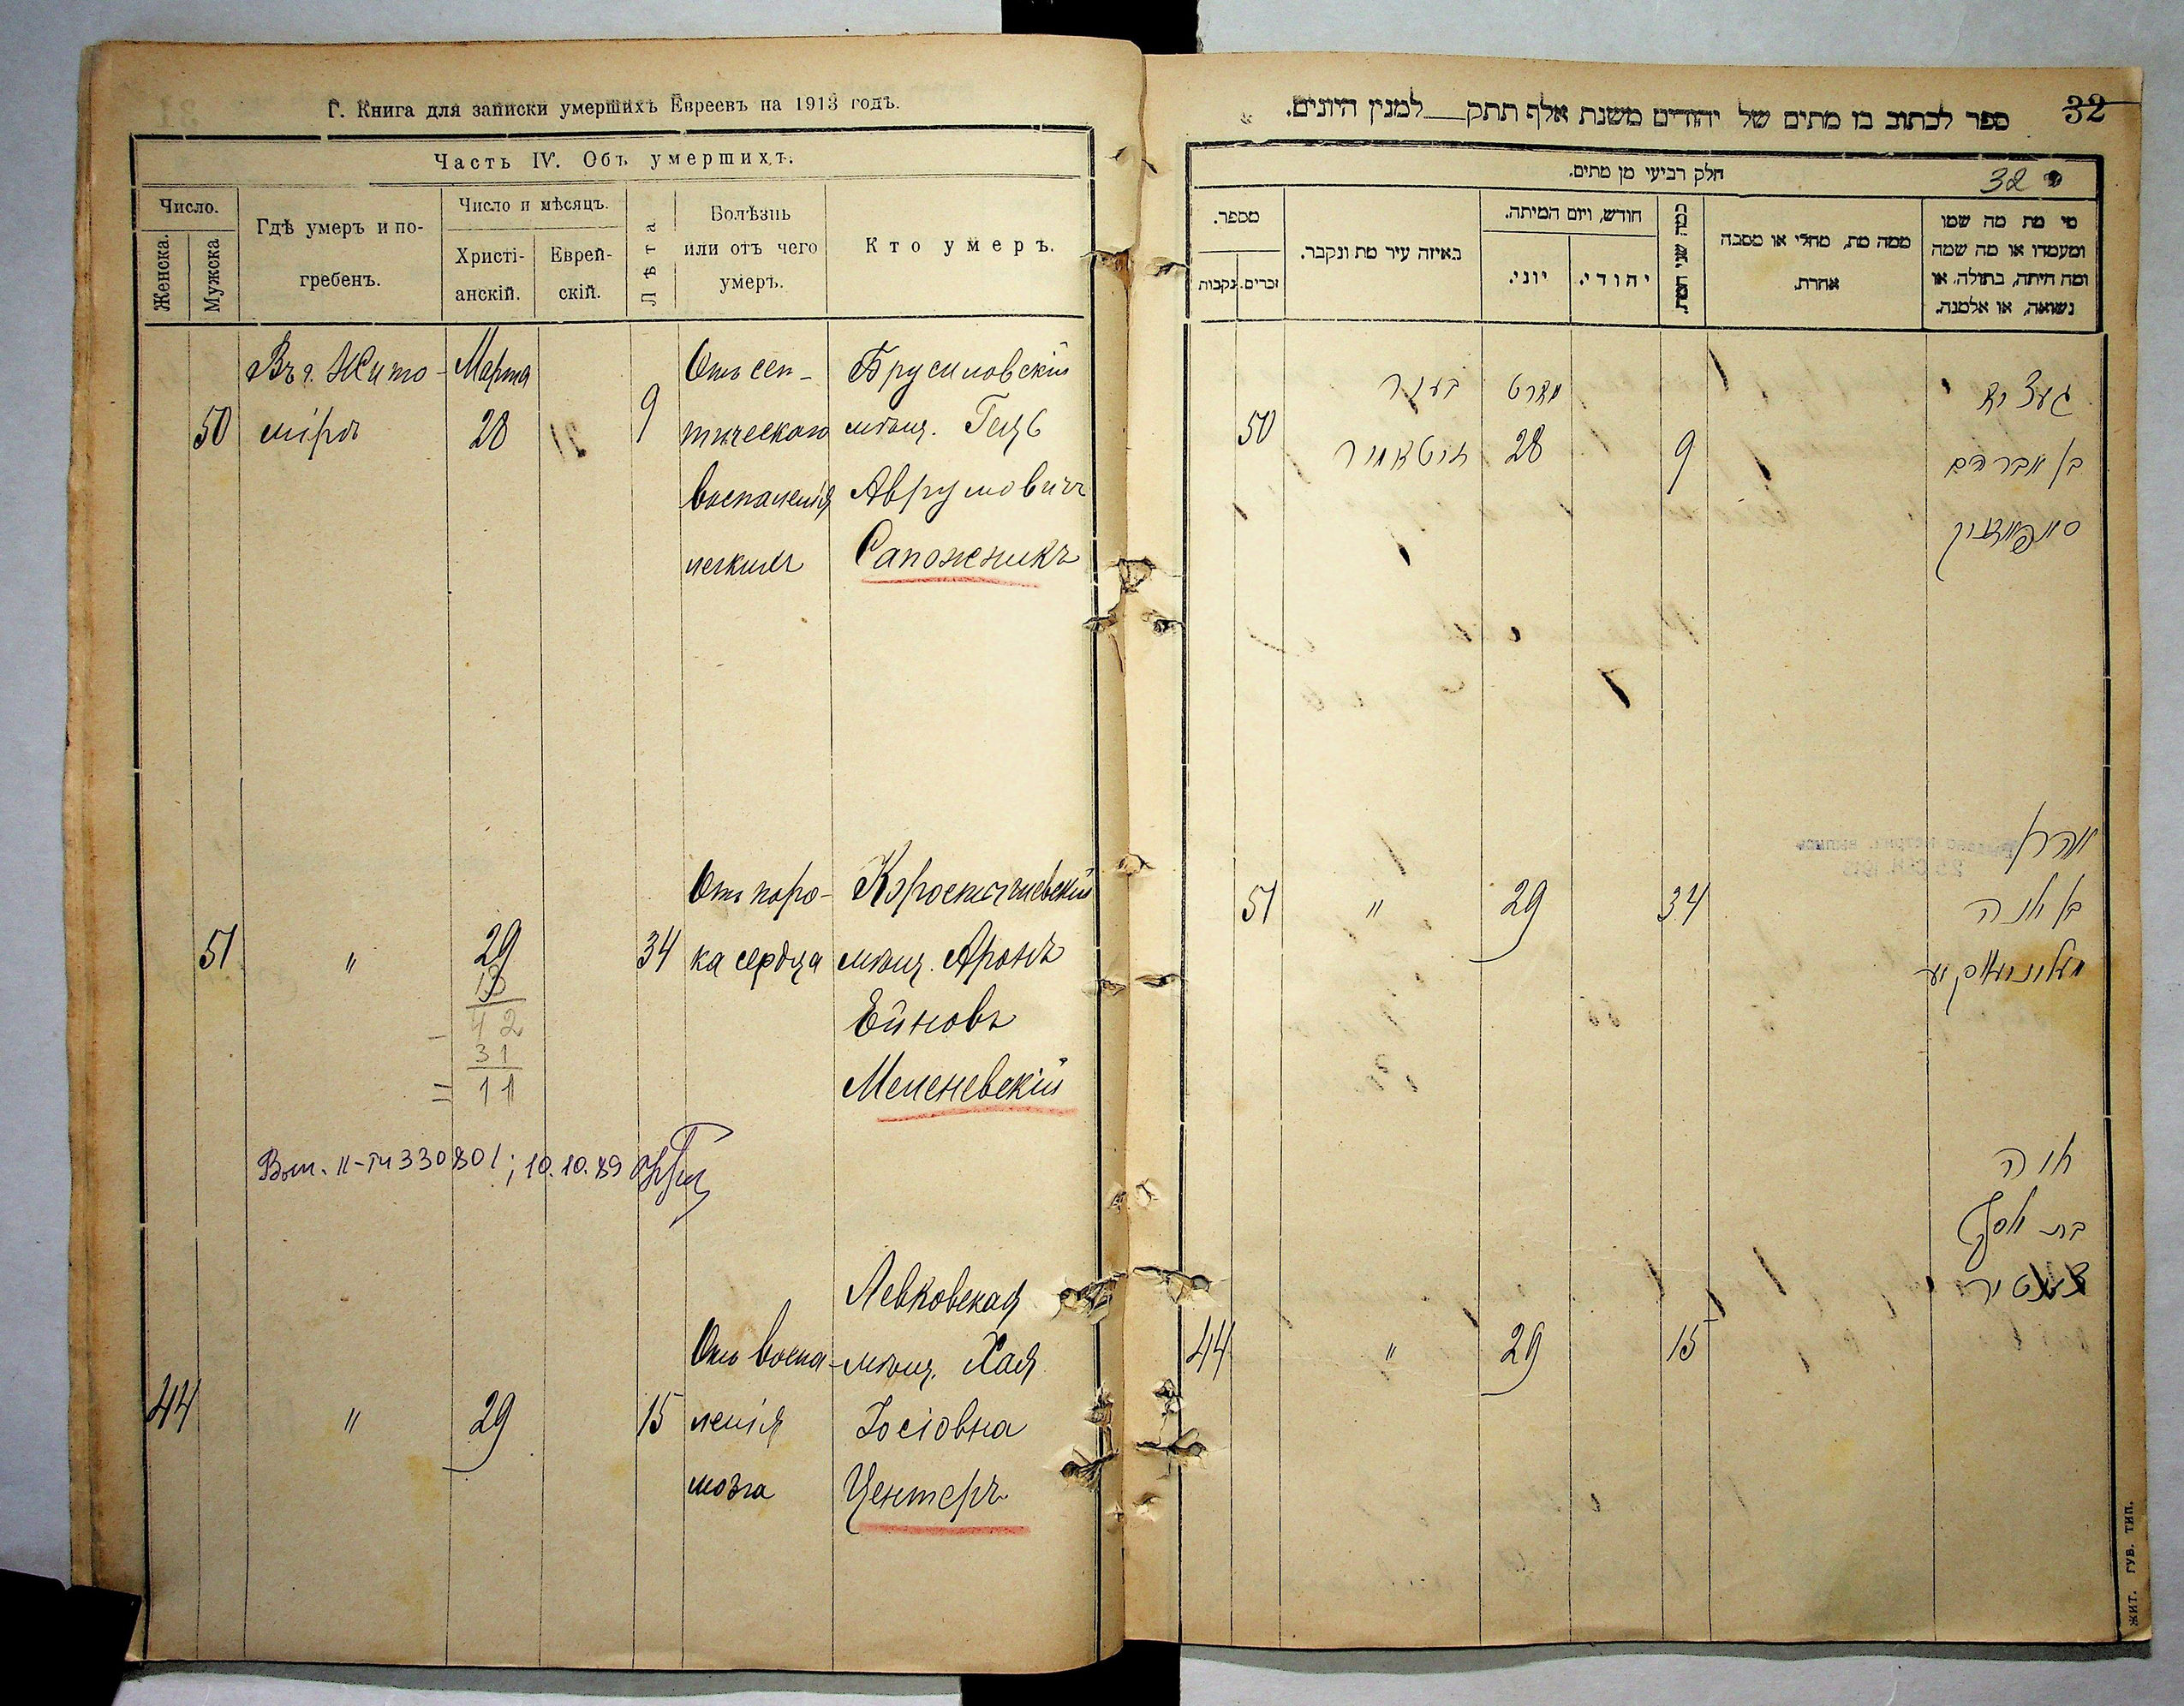 Г. Книга для записки умершихъ Евреевъ на 1913 годъ.
Часть IV. Объ умершихъ.
Число.
Женска.
Мужска.
Гдѣ умеръ и по-
гребенъ.
Число и мѣсяцъ.
Христі-
анскій.
Еврей-
скій.
Лѣта
Болѣзнь
или отъ чего
умеръ.
Кто умеръ.
50
Въ г. Жито-
мірѣ
Марта
28
21
9
Отъ сеп-
тическаго
воспаленія
легкихъ
Брусиловскій
мѣщ. Гецъ
Аврумовичъ
Сапожникъ
51
"
29
13
42
31
= 11
34
Отъ поро-
ка сердца
Коростышевскій
мѣщ. Аронъ
Ейновъ
Меленевскій
10.10.89
44
"
29
15
Отъ воспа-
ленія
мозга
Левковская
мѣщ. Хая
Іосіовна
Центеръ
ספר לכתוב בו מתים של יהודים משנת אלף תתק למנין היונים.
32
חלק רביעי מן מתים.
32
מספר.
זכרים.
נקבות
באיזה עיר מת ונקבר.
חודש, ויום המיתה.
יוני.
יהודי.
כמה שני המת.
ממה מת, מחלי או מסבה
אחרת.
מי מת מה שמו
ומעמדו או מה שמה
ומה היתה, בתולה, או
נשואה, או אלמנה.
50
בעיר
זיטאמיר
מארט
28
9
געציל
בן אברהם
סאפאזניק
51
"
29
34
אהרן
44
"
29
15
חיה
בת יוסף
צענטיר
ЖИТ. ГУБ. ТИП.